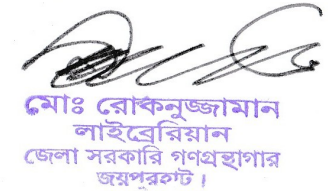 মোঃ রোকনুজ্জামান
লাইব্রেরিয়ান
জেলা সরকারি গণগ্রন্থাগার
জয়পুরহাট।